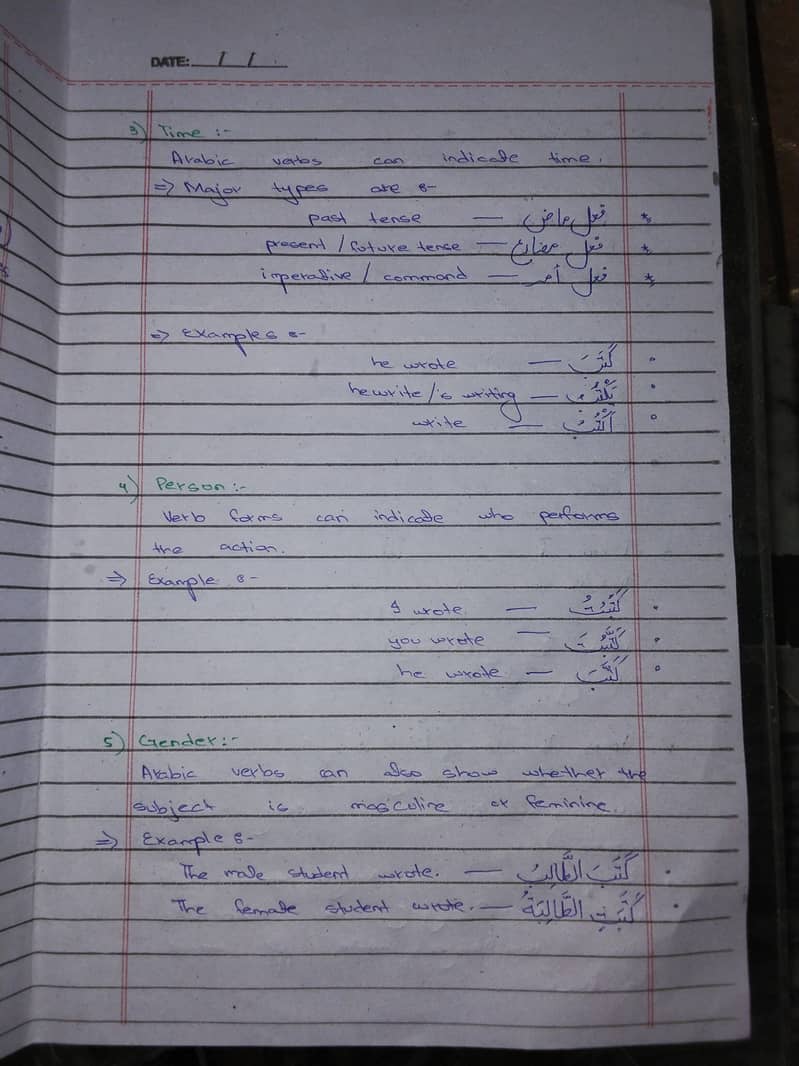 DATE: / /
3) Time :-
Arabic verbs can indicate time.
=> Major types are :-
past tense — فعل ماض *
present / future tense — فعل مضارع *
imperative / command — فعل أمر *
=> Examples :-
he wrote — كَتَبَ •
he write / is writing — يَكْتُبُ •
write — اُكْتُبْ •
4) Person :-
Verb forms can indicate who performs
the action.
=> Example :-
I wrote — كَتَبْتُ •
you wrote — كَتَبْتَ •
he wrote — كَتَبَ •
5) Gender :-
Arabic verbs can also show whether the
subject is masculine or feminine.
=> Example :-
The male student wrote. — كَتَبَ الطَّالِبُ •
The female student wrote. — كَتَبَتِ الطَّالِبَةُ •